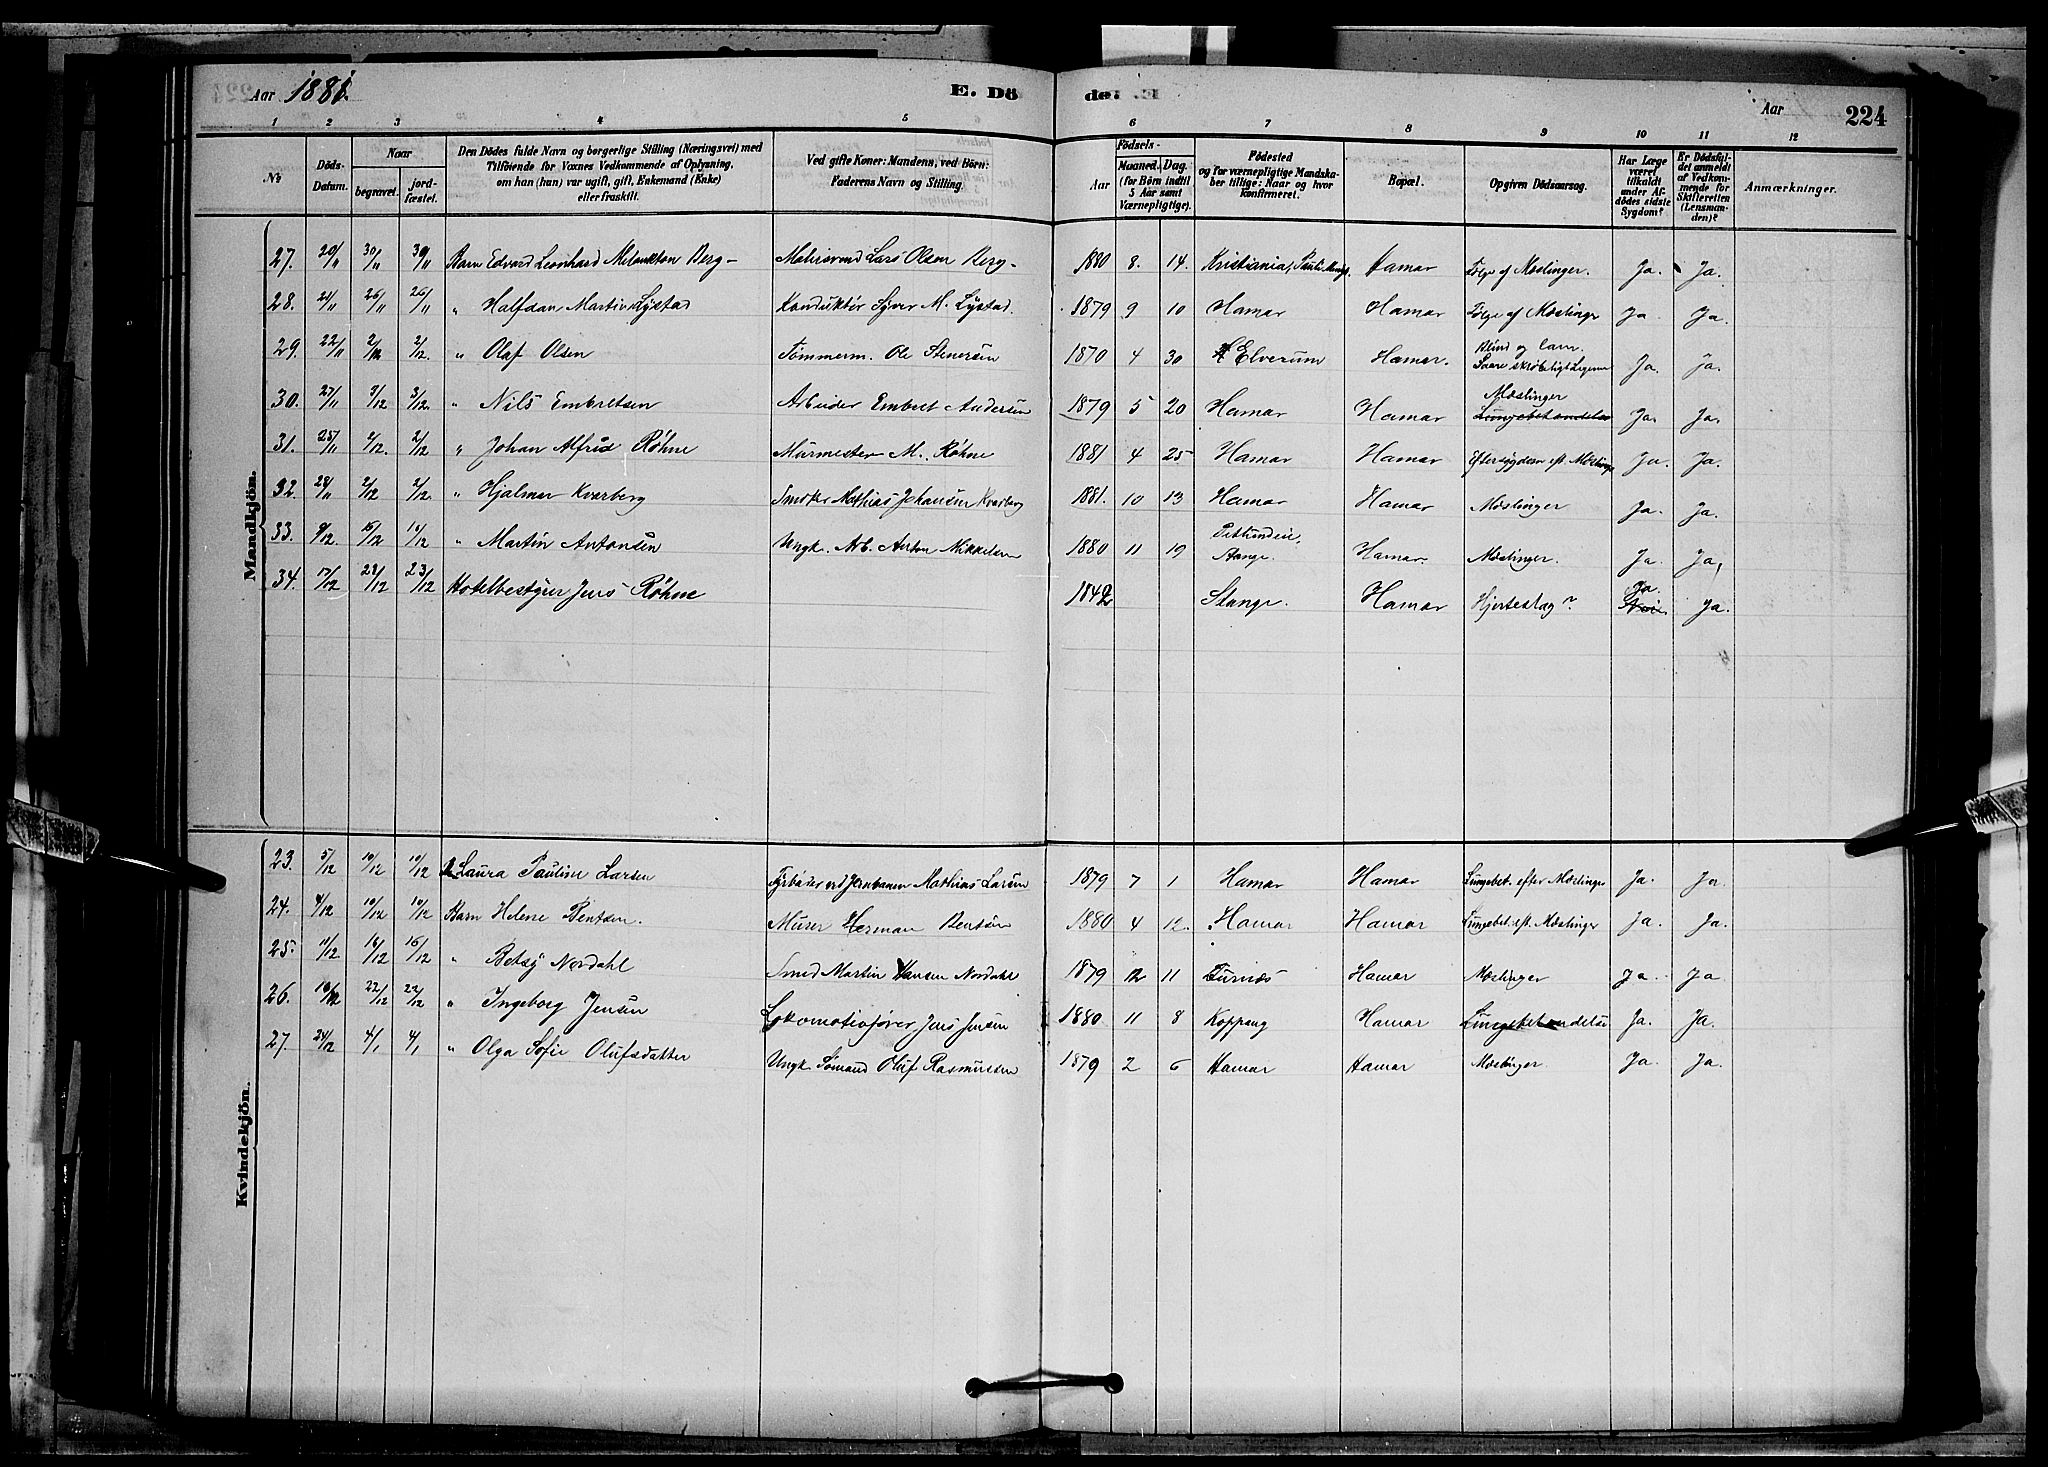 Aar 1881. E. Dö de: Aar 224
1 2 3 4 5 6 7 8 9 10 11 12
№ Döds-Datum. Naar begravet. jord-fæstet. Den Dödes fulde Navn og borgerlige Stilling (Næringsvei) med Tilföiende for Voxnes Vedkommende af Oplysning, om han (hun) var ugift, gift, Enkemand (Enke) eller fraskilt. Ved gifte Koner: Mandens, ved Börn: Faderens Navn og Stilling. Födsels- Aar Maaned. Dag. (for Börn indtil 5 Aar samt Værnepligtige). Födested og for værnepligtige Mandskaber tillige: Naar og hvor konfirmeret. Bopæl. Opgiven Dödsaarsag. Har Læge været tilkaldt under Afdödes sidste Sygdom? Er Dödsfaldet anmeldt af Vedkommende for Skifteretten (Lensmanden)? Anmærkninger.
Mandkjön.
27. 20/11 30/11 30/11 Barn Edvard Leonhard Melankton Berg - Malersvend Lars Olsen Berg - 1880 8. 14. Kristiania, Hamar Følge af Mæslinger. Ja. Ja.
28. 21/11 26/11 26/11 " Halfdan Martin Lystad Konduktør Syver M. Lystad. 1879 9 10 Hamar Hamar Følge af Mæslinger Ja. Ja.
29. 22/11 2/12 2/12. " Olaf Olsen Tømmerm. Ole Stenersen 1870 4 30 Elverum Hamar. Blind og lam. Ja. Ja.
30. 27/11 3/12 3/12. " Nils Embretsen Arbeider Embret Andersen 1879 5 20 Hamar Hamar Mæslinger Ja. Ja.
31. 25/11 2/12. 2/12 " Johan Alfred Røhne Murmester M. Røhne 1881 4 25 Hamar Hamar Eftersygdom eft. Mæslinge Ja. Ja.
32. 28/11 2/12 2/12. " Hjalmar Kvarberg Smed Mathias Johansen Kvarberg 1881. 10 13 Hamar Hamar Mæslinger Ja. Ja.
33. 9/12. 15/12 " Martin Antonsen Ungk. Arb. Anton Mikkelsen 1880 11 19 Stange. Hamar. Mæslinger. Ja. Ja,
34. 17/12 23/12 23/12 Hotelbestyrer Jens Røhne 1842 Stange. Hamar Hjerteslag? Ja Ja.
Kvindekjön.
23. 5/12 10/12 10/12 Laura Pauline Larsen Fyrbøder ved Jernbanen Mathias Larsen 1879 7 1 Hamar Hamar Lungebet. efter Mæslinger Ja. Ja.
24. 4/12 10/12 10/12 Barn Helene Bentsen. Murer Herman Bentsen 1880 4 12. Hamar Hamar Lungebet. eft. Mæslinger Ja. Ja.
25. 11/12 16/12 16/12 " Betsy Nordahl Smed Martin Hansen Nordahl 1879 12 11 Furnæs Hamar Mæslinger Ja. Ja
26. 22/12 22/12 " Ingeborg Jensen Lokomotivfører Jens Jensen 1880 11 8 Koppang Hamar Lungebetændelse Ja. Ja.
27. 24/12 4/1 4/1 " Olga Sofie Olufsdatter Ungk. Sømand Oluf Rasmussen 1879 2 6 Hamar Hamar Mæslinger. Ja. Ja.